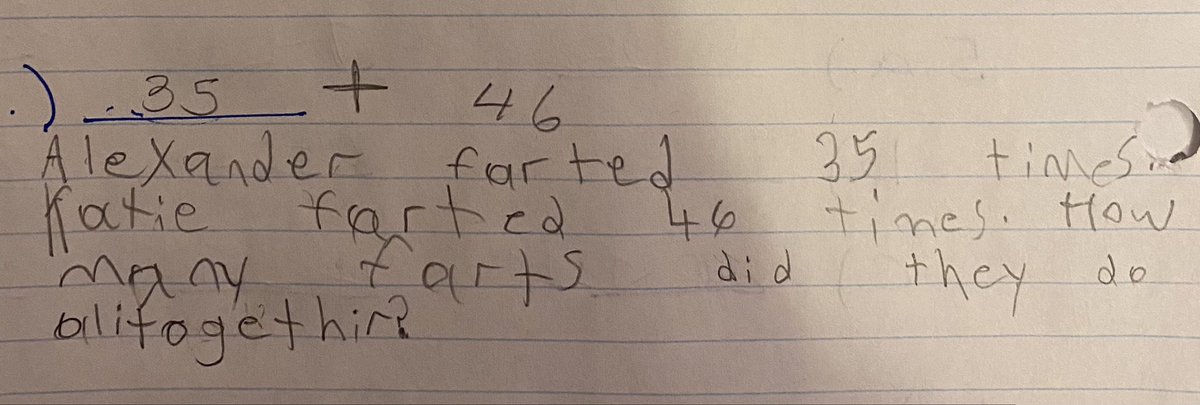 .) 35 + 46
Alexander farted 35 times.
Katie farted 46 times. How
many farts did they do
alitogethir?